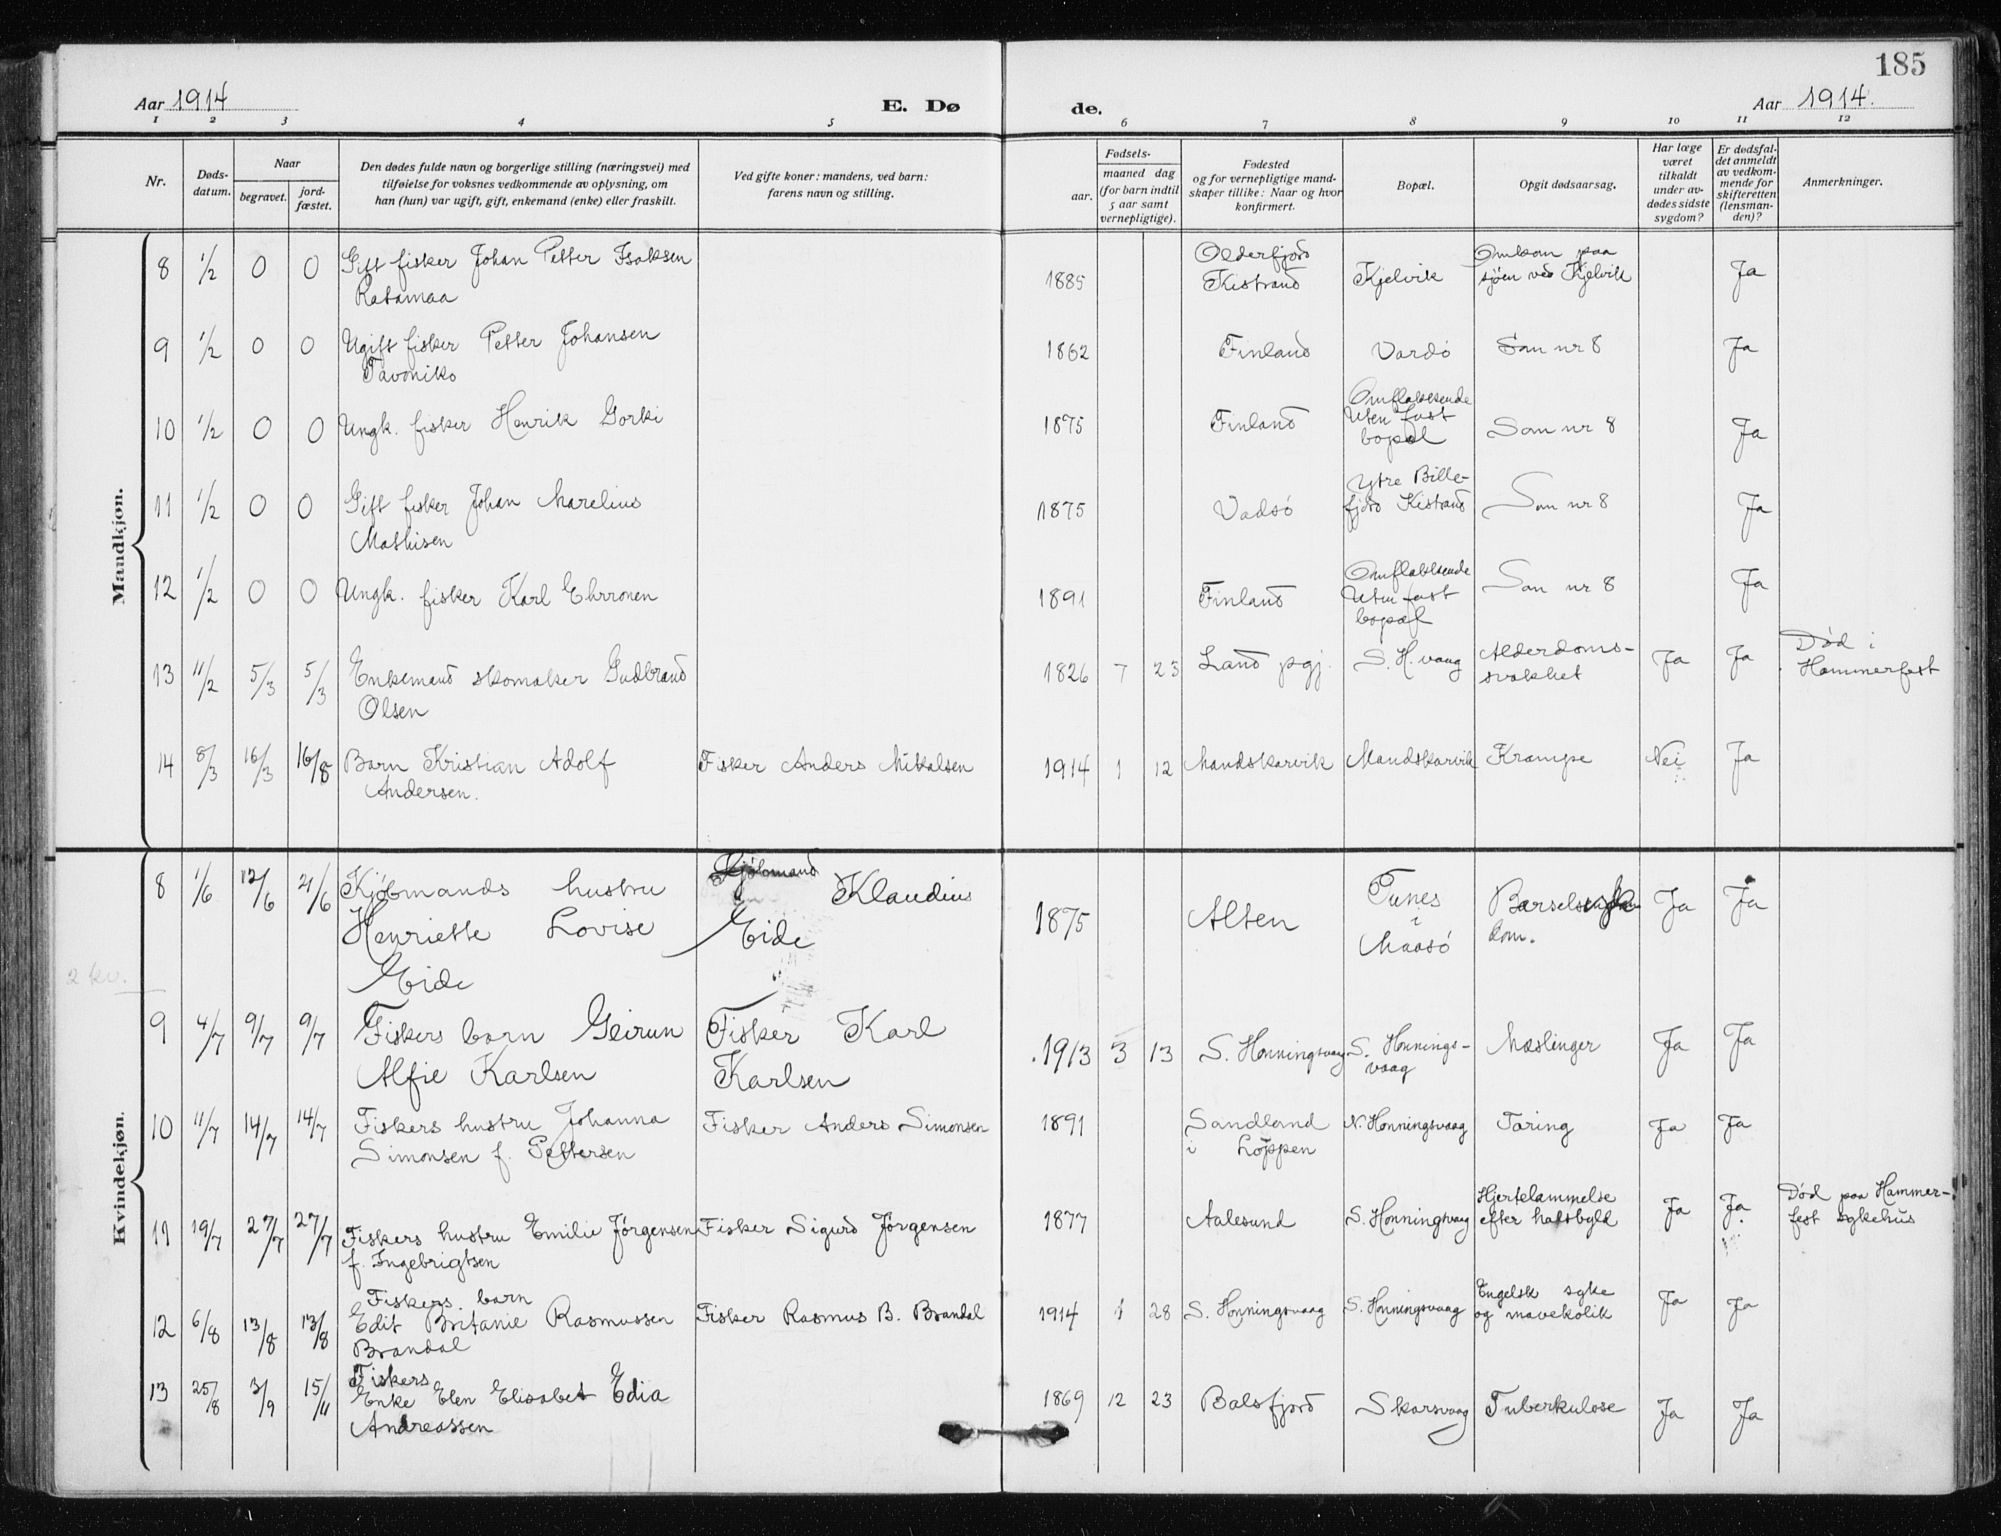 185
Aar 1914
E. Dø
de.
Aar 1914.
1 2 3 4 5 6 7 8 9 10 11 12
Nr.
Døds-
datum.
Naar
begravet.
jord-
fæstet.
Den dødes fulde navn og borgerlige stilling (næringsvei) med
tilføielse for voksnes vedkommende av oplysning, om
han (hun) var ugift, gift, enkemand (enke) eller fraskilt.
Ved gifte koner: mandens, ved barn:
farens navn og stilling.
Fødsels-
aar.
maaned dag
(for barn indtil
5 aar samt
vernepligtige).
Fødested
og for vernepligtige mand-
skaper tillike: Naar og hvor
konfirmert.
Bopæl.
Opgit dødsaarsag.
Har læge
været
tilkaldt
under av-
dødes sidste
sygdom?
Er dødsfal-
det anmeldt
av vedkom-
mende for
skifteretten
(lensman-
den)?
Anmerkninger.
Mandkjøn.
8 1/2 0 0 Gift fisker Johan Petter Isaksen
Ratamaa
1885 Olderfjord
Kistrand
Kjelvik
Omkom paa
sjøen ved Kjelvik
Ja
9 1/2 0 0 Ugift fisker Petter Johansen
Tavoniko
1862 Finland Vardö Som nr 8 Ja
10 1/2 0 0 Ungk. fisker Henrik Gorki
1875 Finland
Omflakkende
Uten fast
bopæl
Som nr 8 Ja
11 1/2 0 0 Gift fisker Johan Marelius
Mathisen
1875 Vadsö
Ytre Bille-
fjord Kistrand
Som nr 8 Ja
12 1/2 0 0 Ungk. fisker Karl Ehrronen
1891 Finland
Omflakkende
Uten fast
bopæl
Som nr 8 Ja
13 11/2 5/3 5/3 Enkemand skomaker Gudbrand
Olsen
1826 7 23 Land pgj. S. H. vaag
Alderdoms-
svakhet
Ja Ja
Død i
Hammerfest
14 8/3 16/3 16/8 Barn Kristian Adolf
Andersen.
Fisker Anders Mikalsen
1914 1 12 Mandskarvik Mandskarvik Krampe Nei Ja
Kvindekjøn.
2 kv.
8 1/6 12/6 21/6 Kjöbmands hustru
Henriette Lovise
Eide
Kjöbmand Klaudius
Eide
1875 Alten
Tunes
i
Maasö
Ja Ja
9 4/7 9/7 9/7 Fiskers barn Geirun
Alfie Karlsen
Fisker Karl
Karlsen
1913 3 13 S. Honningsvaag
S. Honnings-
vaag
Mæslinger Ja Ja
10 11/7 14/7 14/7 Fiskers hustru Johanna
Simonsen f. Pettersen
Fisker Anders Simonsen
1891 Sandland
i Loppen
N. Honningsvaag Tæring Ja Ja
11 19/7 27/7 27/7 Fiskers hustru Emilie Jörgensen
f. Ingebrigtsen
Fisker Sigurd Jörgensen
1877 Aalesund S. Honningvaag
Hjertelammelse
efter halsbyld
Ja Ja.
Död paa Hammer-
fest sykehus
Fiskers barn
12 6/8 13/8 13/8 Edit Britanie Rasmussen
Brandal
Fisker Rasmus B. Brandal
1914 1 28 S. Honningsvaag S. Honningsvaag
Engelsk syke
og mavekolik
Ja Ja
Fiskers
13 25/8 3/9 15/11 Enke Elen Elisabet Edia
Andreassen
1869 12 23 Balsfjord Skarsvaag Tuberkulose Ja Ja